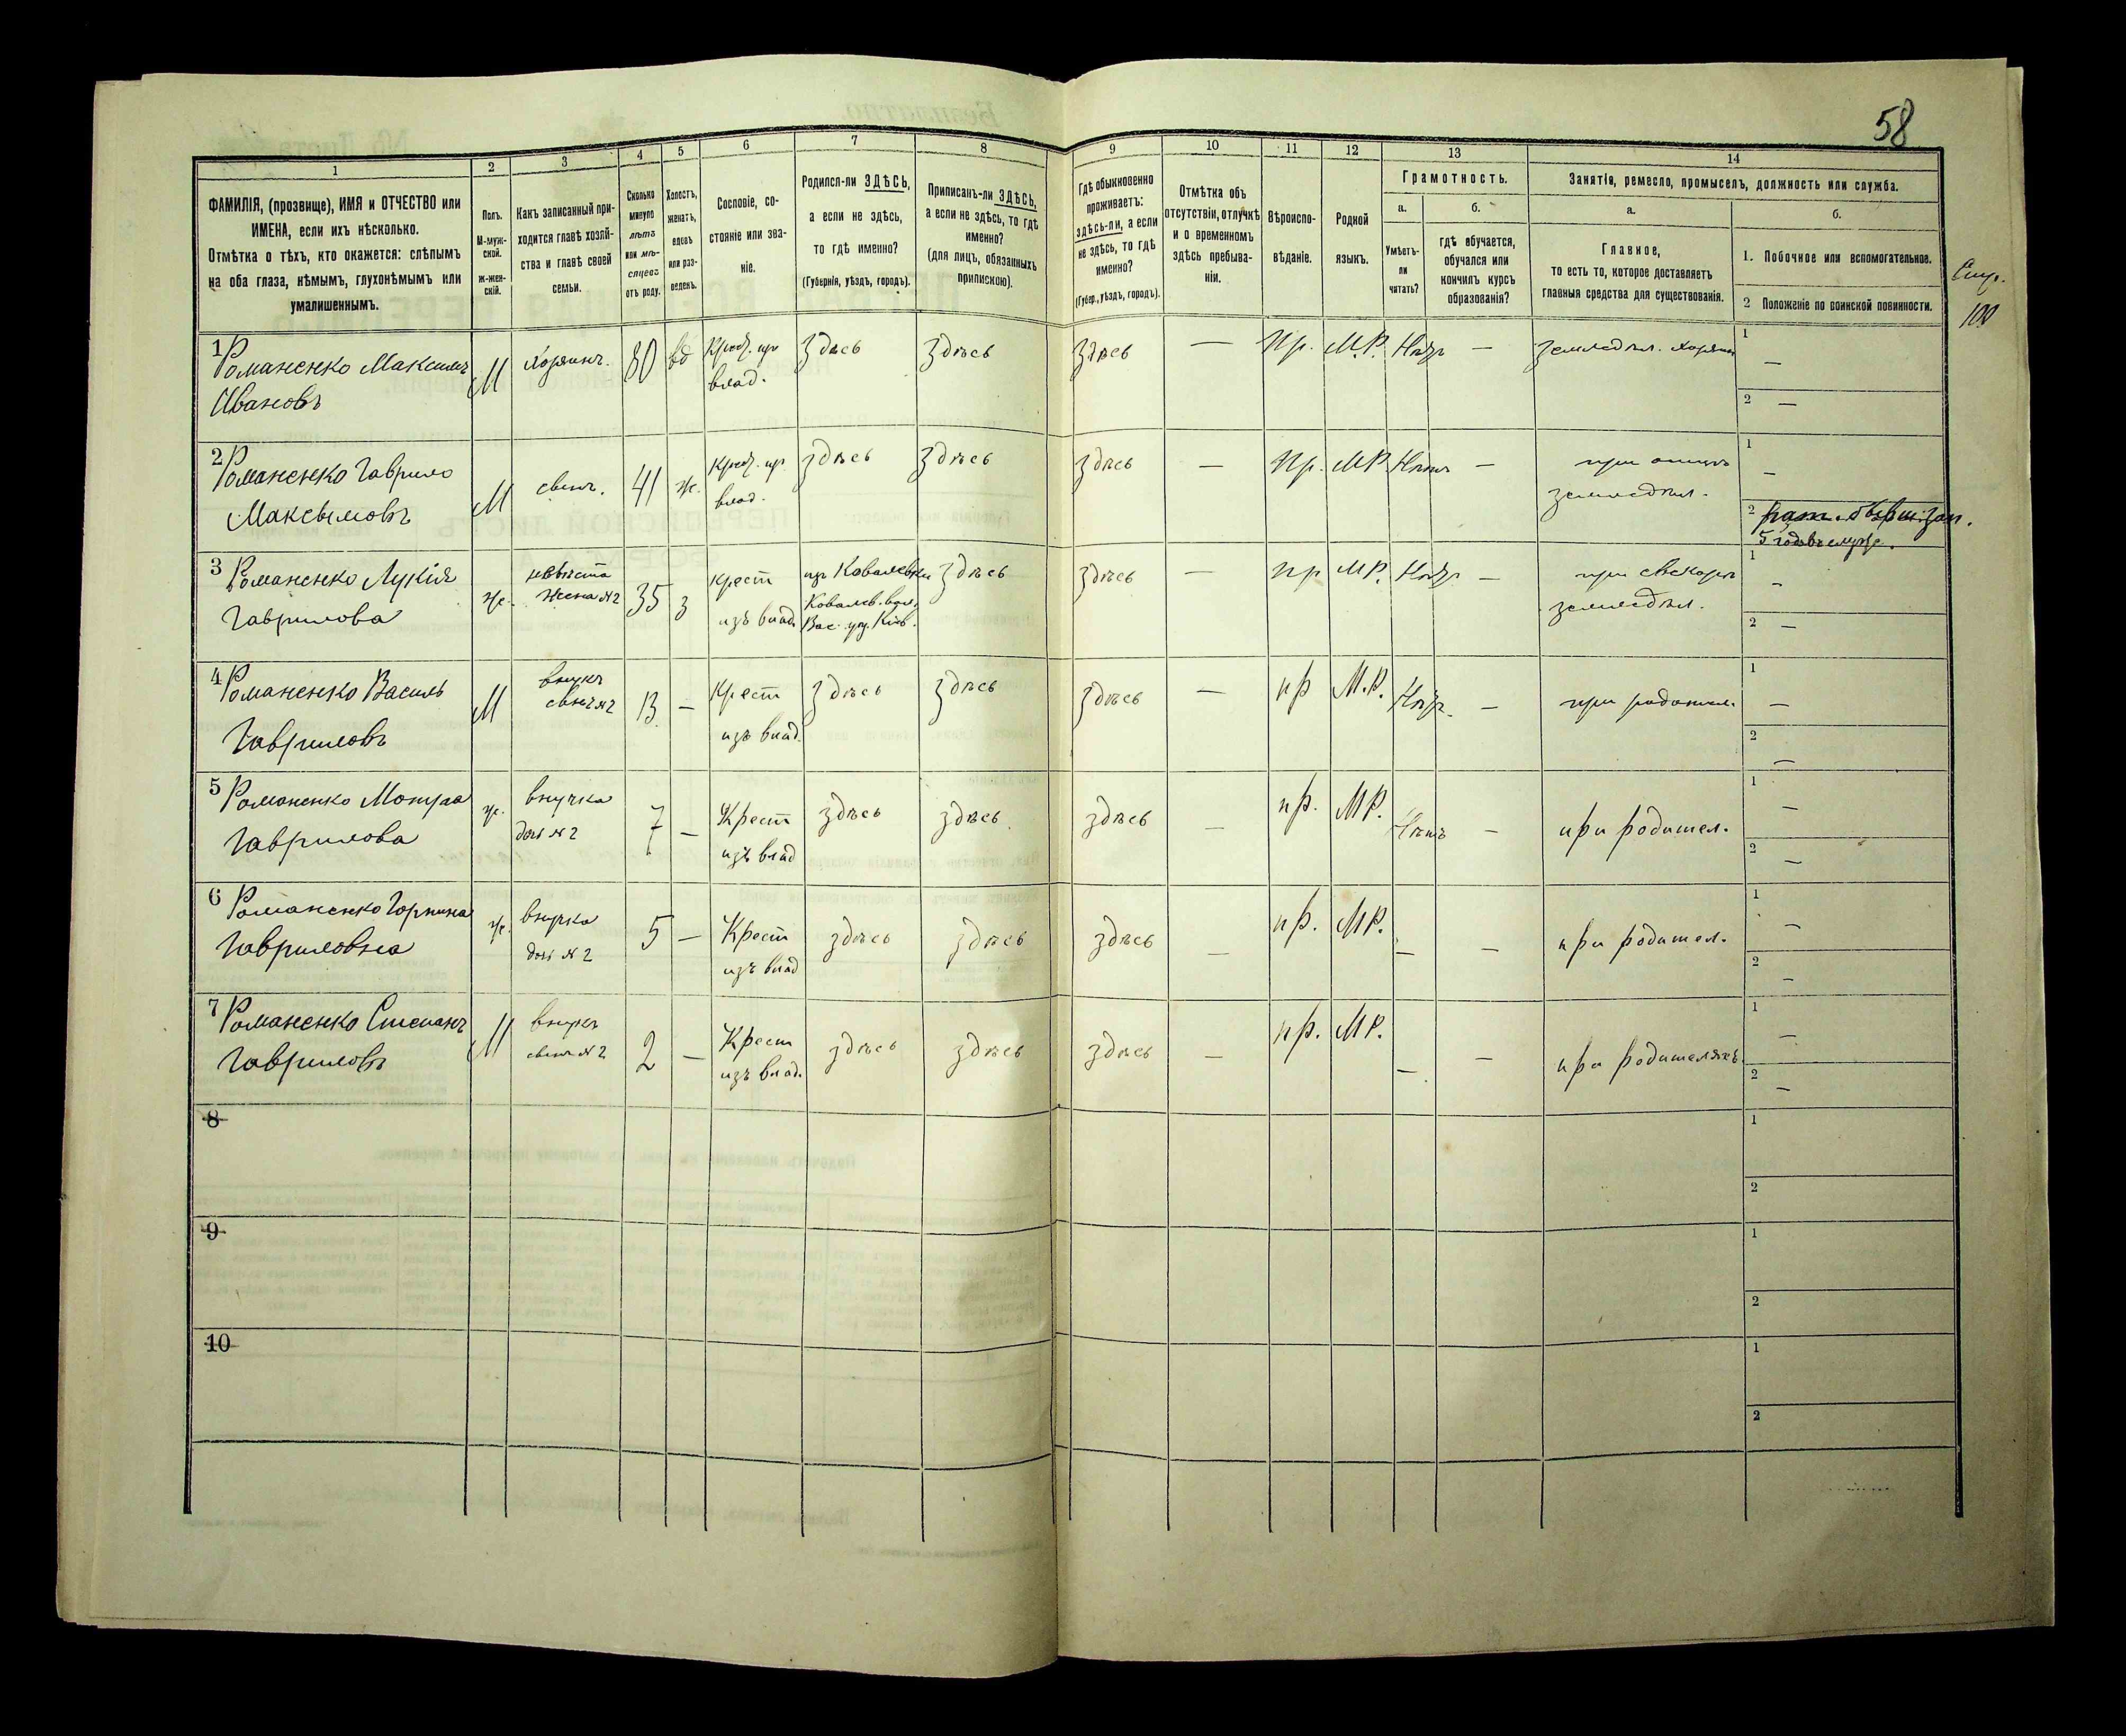 58
1
2
3
4
5
6
7
8
9
10
11
12
13
14
ФАМИЛІЯ, (прозвище), ИМЯ и ОТЧЕСТВО или
ИМЕНА, если ихъ нѣсколько.
Отмѣтка о тѣхъ, кто окажется: слѣпымъ
на оба глаза, нѣмымъ, глухонѣмымъ или
умалишеннымъ.
Полъ.
М-муж-
ской.
Ж-жен-
скій.
Какъ записанный при-
ходится главѣ хозяй-
ства и главѣ своей
семьи.
Сколько
минуло
лѣтъ
или мѣ-
сяцевъ
отъ роду.
Холостъ,
женатъ,
вдовъ
или раз-
веденъ.
Сословіе, со-
стояніе или зва-
ніе.
Родился-ли ЗДѢСЬ,
а если не здѣсь,
то гдѣ именно?
(Губернія, уѣздъ, городъ).
Приписанъ-ли ЗДѢСЬ,
а если не здѣсь, то гдѣ
именно?
(для лицъ, обязанныхъ
припискою).
Гдѣ обыкновенно
проживаетъ:
здѣсь-ли, а если
не здѣсь, то гдѣ
именно?
(Губер., уѣздъ, городъ).
Отмѣтка объ
отсутствіи, отлучкѣ
и о временномъ
здѣсь пребыва-
ніи.
Вѣроиспо-
вѣданіе.
Родной
языкъ.
Грамотность.
а.
Умѣетъ-
ли
читать?
б.
гдѣ обучается,
обучался или
кончилъ курсъ
образованія?
Занятія, ремесло, промыселъ, должность или служба.
а.
Главное,
то есть то, которое доставляетъ
главныя средства для существованія.
б.
1. Побочное или вспомогательное.
2 Положеніе по воинской повинности.
100
1 Романенко Максимъ М Хозяинъ. 80 вд здѣсь здѣсь здѣсь — Пр. М.Р. — земледѣл. хозяин 1 —
Ивановъ влад. 2 —
2 Романенко Гаврило М сынъ. 41 ж. здѣсь здѣсь здѣсь — Пр. М.Р. Нѣтъ — при отцѣ 1 —
Максымовъ влад. земледѣл. 2
5 годъ
3 Романенко Лукія ж. невѣста 35 з крест изъ Ковалевки здѣсь здѣсь — пр М.Р. — при свекорѣ 1 —
Гаврилова жена №2 изъ влад. Ковалев. вол. земледѣл. 2 —
Вас. уѣз. Кіев.
4 Романенко Василь М внукъ 13 — крест здѣсь здѣсь здѣсь — пр М.Р. — при родител. 1 —
Гавриловъ сынъ №2 изъ влад. 2 —
5 Романенко ж. внучка 7 — Крест здѣсь здѣсь здѣсь — пр. М.Р. Нѣтъ — при родител. 1 —
Гаврилова дочь №2 изъ влад 2 —
6 Романенко Горпина ж. внучка 5 — Крест здѣсь здѣсь здѣсь — пр. М.Р. — — при родител. 1 —
Гавриловна дочь №2 изъ влад 2 —
7 Романенко Степанъ М внукъ 2 — Крест здѣсь здѣсь здѣсь — пр. М.Р. — — при родителяхъ 1 —
Гавриловъ сынъ №2 изъ влад. 2 —
8 1
2
9 1
2
10 1
2